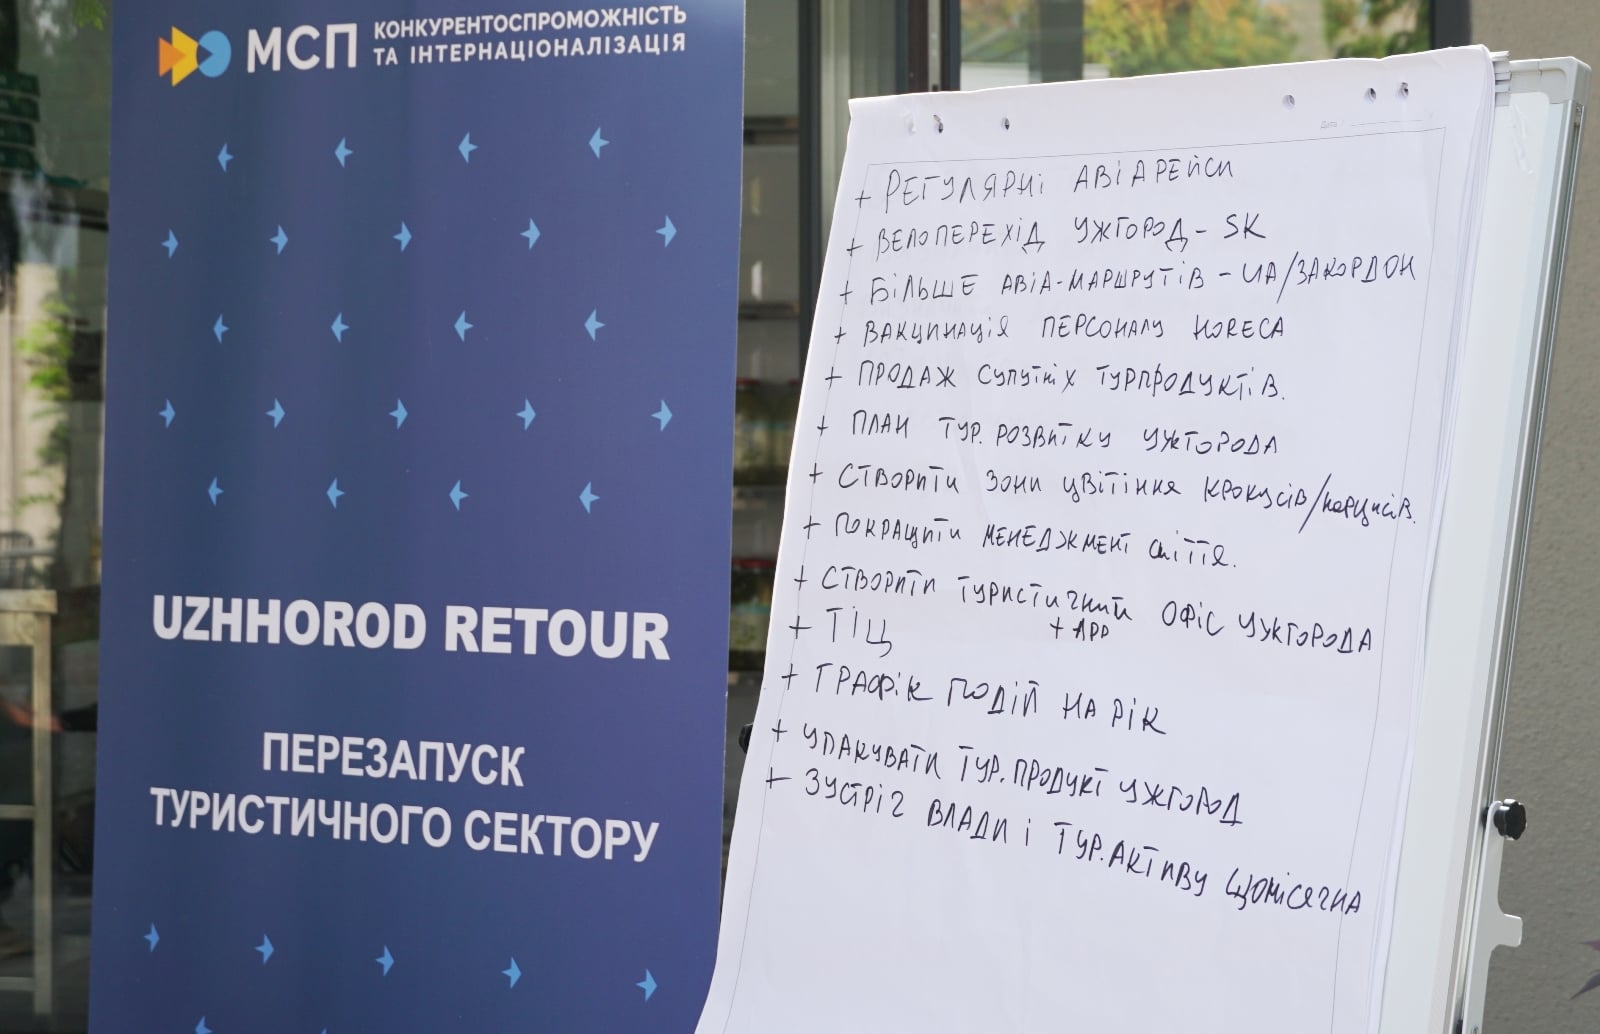 МСП
КОНКУРЕНТОСПРОМОЖНІСТЬ
ТА ІНТЕРНАЦІОНАЛІЗАЦІЯ
UZHHOROD RETOUR
ПЕРЕЗАПУСК
ТУРИСТИЧНОГО СЕКТОРУ
Дата
+ РЕГУЛЯРНІ АВІАРЕЙСИ
+ ВЕЛОПЕРЕХІД УЖГОРОД - SK
+ БІЛЬШЕ АВІА-МАРШРУТІВ - UA/ЗАКОРДОН
+ ВАКЦИНАЦІЯ ПЕРСОНАЛУ HORECA
+ ПРОДАЖ СУПУТНІХ ТУРПРОДУКТІВ.
+ ПЛАН ТУР. РОЗВИТКУ УЖГОРОДА
+ СТВОРИТИ ЗОНИ ЦВІТІННЯ КРОКУСІВ/НАРЦИСІВ.
+ ПОКРАЩИТИ МЕНЕДЖМЕНТ СМІТТЯ.
+ СТВОРИТИ ТУРИСТИЧНИЙ ОФІС УЖГОРОДА
+ APP
+ ТІЦ
+ ГРАФІК ПОДІЙ НА РІК
+ УПАКУВАТИ ТУР. ПРОДУКТ УЖГОРОД
+ ЗУСТРІЧ ВЛАДИ І ТУР. АКТИВУ ЩОМІСЯЧНА